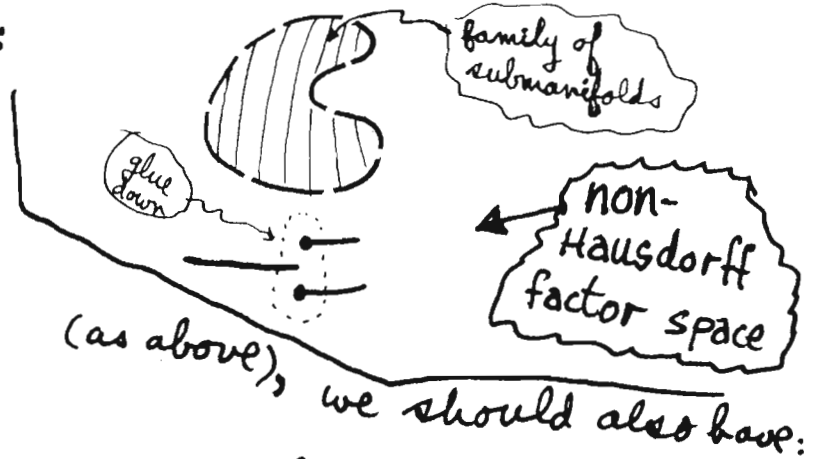 :
family of
submanifolds
glue
down
non-
Hausdorff
factor space
(as above), we should also have: